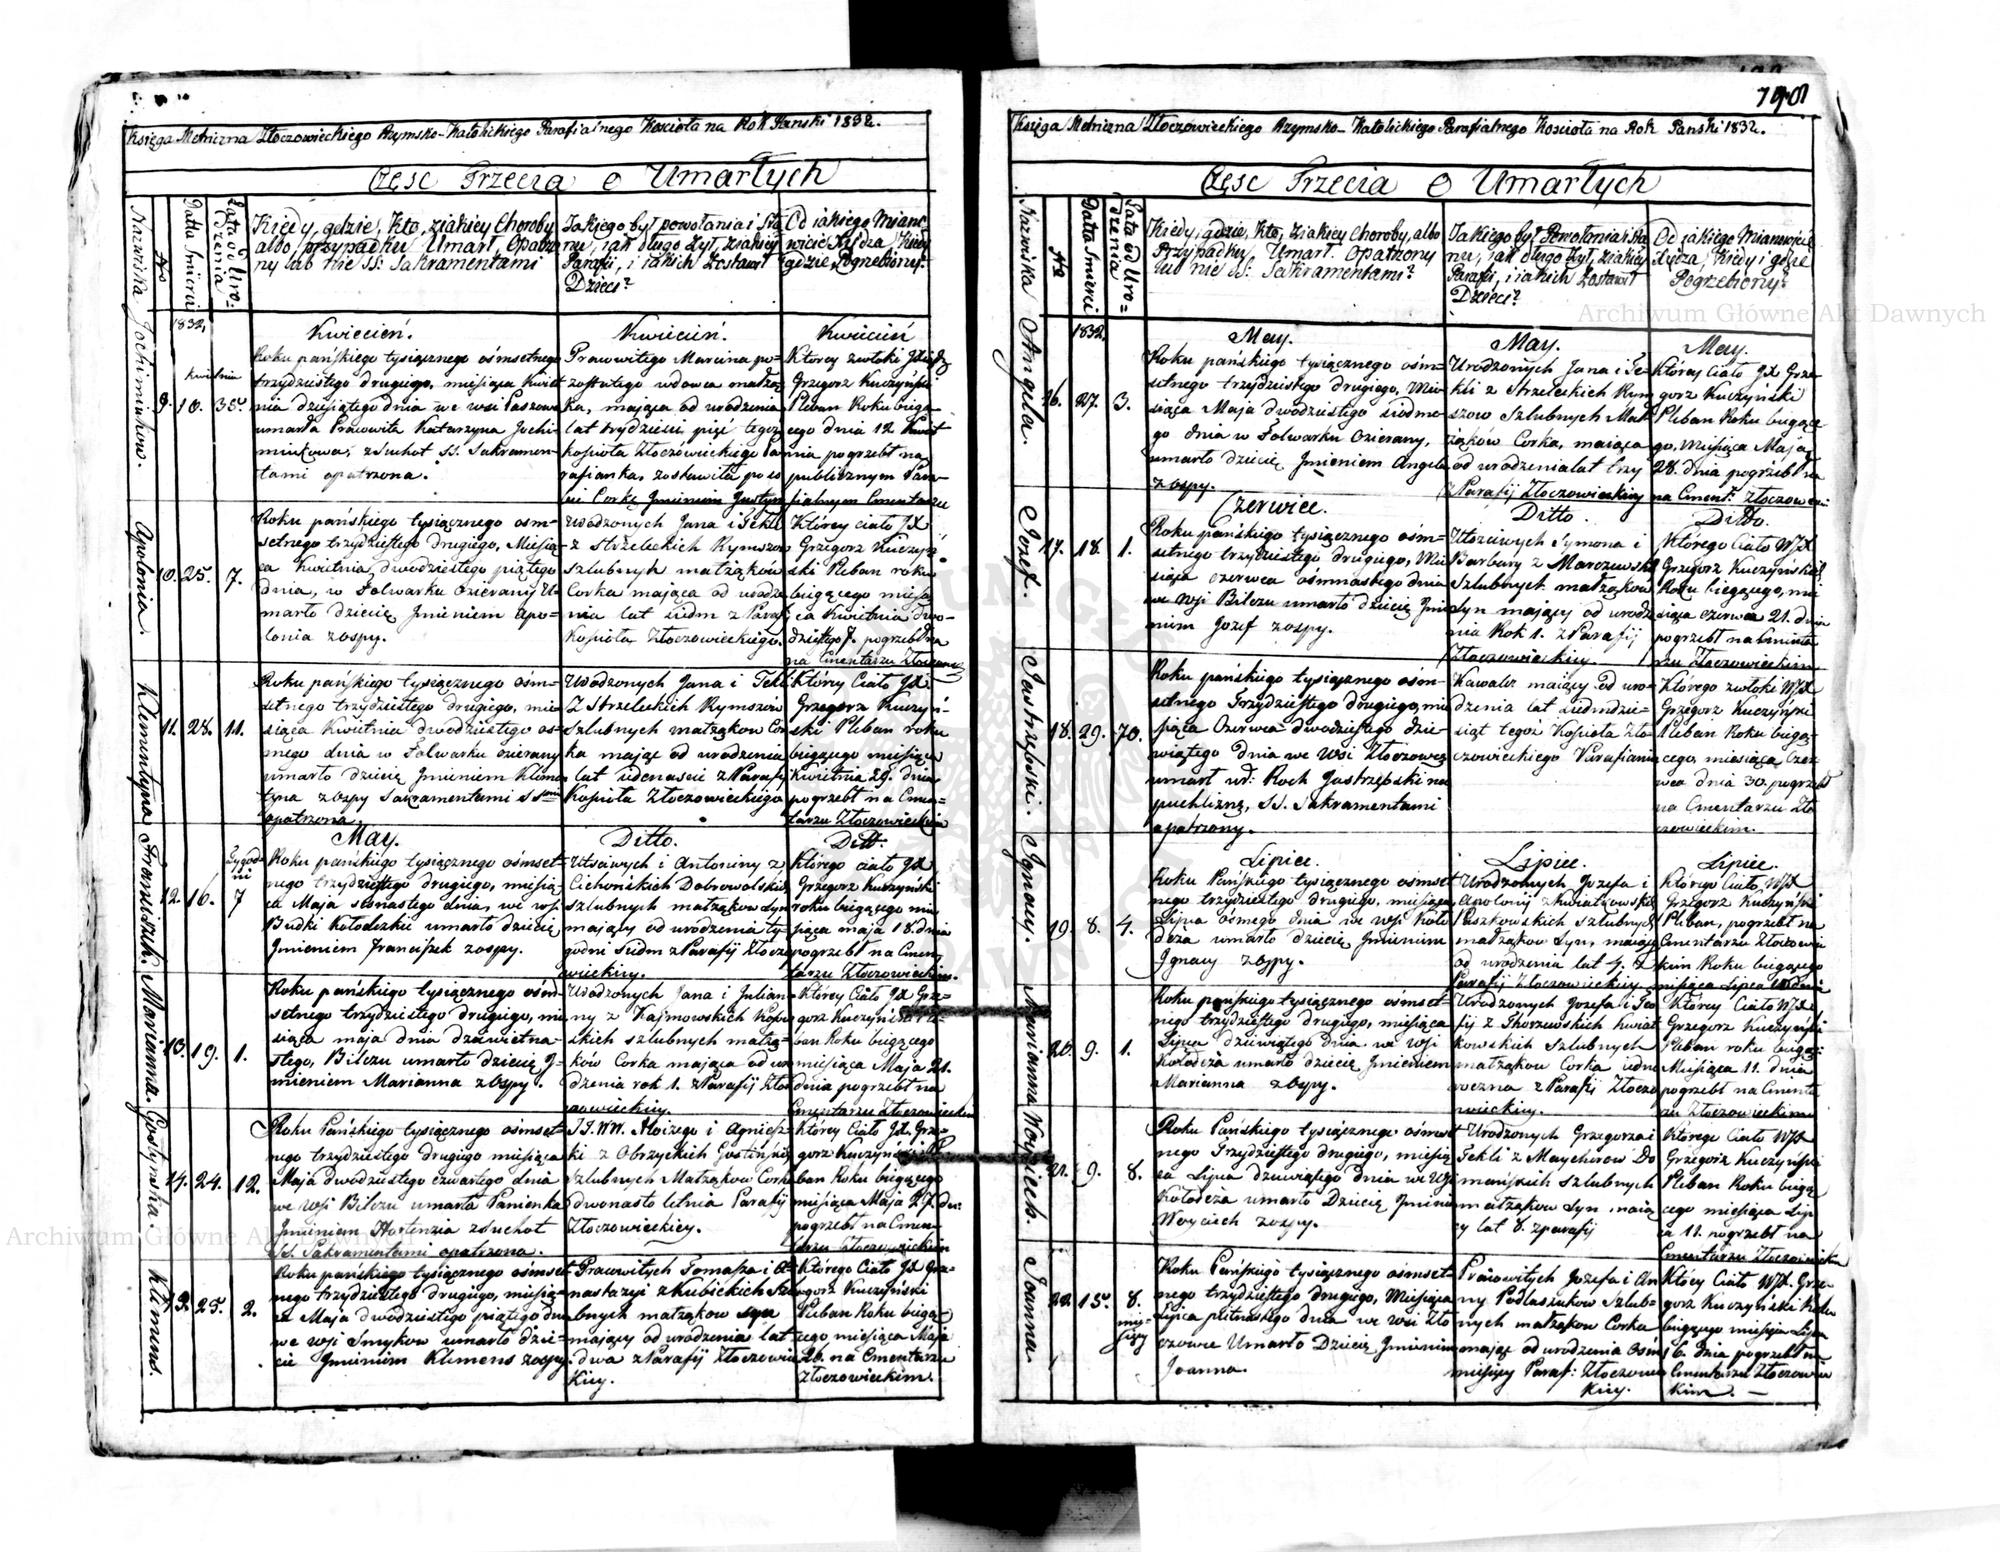 Księga Metriczna Złoczowieckiego Rzymsko-Katolickiego Parafialnego Kościoła na Rok Panski 1832.
Częsc Trzecia o Umarłych
Nazwiska
No
Datta Smierci
Lata od Uro=
dzenia
Kiedy, gdzie, Kto, ziakiey Choroby
albo przypadku Umarł, Opatrzo
ny lub nie SS: Sakramentami
Jakiego był powołania i Sta
nu, iak długo żył, ziakiey
Parafii, i iakich zostawił
Dzieci?
Od iakiego Miano
wicie Xiędza Kiedy
gdzie Pogrzebiony?
1832.
Kwiecień.
Kwiecień.
Kwiecień
Jochimiukow.
Kwietnia
9. 10. 35.
Roku pańskiego tysiącznego ośmsetnego
trzydziestego drugiego, miesiąca Kwiet
nia dziesiątego dnia we wsi Paszowa
umarła Prawowita Katarzyna Jochi
miukowa, z Suchot SS. Sakramen-
tami opatrzona.
Prawowitego Marcina po-
zostałego wdowca małżo
ka, maiąca od urodzenia
lat trydzieści pięć tegoż
kościoła Złoczowieckiego Pa
rafianka, zostawiła po so
bie Corkę Jmieniem Justyn
Ktorey zwłoki JX
Grzegorz Kuczyński
Pleban Roku biegą
cego dnia 12 Kwiet
nia pogrzebł na
publicznym Para-
fialnym Cmentarzu
Apolonia.
10. 25. 7.
Roku pańskiego tysiącznego ośm-
setnego trzydziestego drugiego, Miesią-
ca Kwietnia dwodziestego piątego
dnia, w Folwarku Ozierany U-
marło dziecię Jmieniem Apo-
lonia zospy.
Urodzonych Jana i Tekli
z Strzeleckich Rymszow
szlubnych małżąków
Corka maiąca od urodze
nia lat siedm z Parafi
Kościoła Złoczowieckiego.
Ktorey ciało JX
Grzegorz Kuczyń-
ski Pleban roku
biegącego miesią
ca Kwietnia dwo-
dziestego 7. pogrzebł
na Cmentarzu Złoczowec
Klementyna
11. 28. 11.
Roku pańskiego tysiącznego ośm-
setnego trzydziestego drugiego, mie
siąca Kwietnia dwodziestego os-
mego dnia w Folwarku Ozierany
umarło dziecię Jmieniem Klemen
tyna zospy Sakramentami SSmi
opatrzona.
Urodzonych Jana i Tekli
Z Strzeleckich Rymszow
szlubnych małżąkow Cor
ka maiąc od urodzenia
lat iedenascie z Parafi
Kościoła Złoczowieckiego
Ktorey Ciało JX
Grzegorz Kuczyń-
ski Pleban roku
biegącego miesiąca
Kwietnia 29. dnia
pogrzebł na Cmen-
tarzu Złoczowieckim
May.
Ditto.
Ditto.
Franciszek.
12. 16.
Tygod-
ni
7
Roku pańskiego tysiącznego ośmset-
nego trzydziestego drugiego, miesią-
ca Maja szesnastego dnia, we wsi
Budki Kołodeżki umarło dziecię
Jmieniem Franciszek zospy.
Utściwych i Antoniny z
Cichońskich Dobrowolskich
szlubnych małżąkow Syn
maiący od urodzenia ty-
godni siedm z Parafij Złoczo
wieckiey.
Którego ciało JX
Grzegorz Kuczyński
roku biegącego mie
siąca maja 18. dnia
pogrzebł na Cmen
tarzu Złoczowieckim.
Marianna.
13. 19. 1.
Roku pańskiego tysiącznego ośm
setnego trzydziestego drugiego, mie
siąca maja dnia dziewietna-
stego, Bilczu umarło dziecię J-
mieniem Marianna zospy.
Urodzonych Jana i Julian-
ny z
skich szlubnych małżą-
ków Corka maiąca od uro
dzenia rok 1. z Parafij Zło
czowieckiey.
Ktorey Ciało JX Grze-
gorz Kuczyński Ple-
ban Roku biegącego
miesiąca Maja 21.
dnia pogrzebł na
Cmentarzu Złoczowieckim
Gostynska.
14. 24. 12.
Roku Pańskiego tysiącznego ośmset-
nego trzydziestego drugiego miesiąca
Maja dwodziestego czwartego dnia
we wsi Bilczu umarła Panienka
Jmieniem Hortenzia zsuchot
SS. Sakramentami opatrzona.
JJ.WW. Aloizego i Agniesz-
ki z Obrzyckich Gostińskich
Szlubnych Małżąkow Corka
dwonasto letnia Parafij
Złoczowieckiey.
Ktorey Ciało JX. Grze-
gorz Kuczyński Ple
ban Roku biegącego
miesiąca Maja 27. dn:
pogrzebł na Cmen-
tarzu Złoczowieckim
Klemens.
15. 25. 2.
Roku pańskiego tysiącznego ośmset-
nego trzydziestego drugiego, miesią-
ca Maja dwodziestego piątego dnia
we wsi Smykow umarło dzie-
cie Jmieniem Klemens zospy.
Prawowitych Tomasza i A-
nastazyi z Kubickich szlu
bnych małżąkow Syn
maiący od urodzenia lat
dwa z Parafij Złoczowiec
kiey.
Którego Ciało JX Grze-
gorz Kuczyński
Pleban Roku biegą-
cego miesiąca Maja
26. na Cmentarzu
Złoczowieckim.
190
Księga Metriczna Złoczowieckiego Rzymsko-Katolickiego Parafialnego Kościoła na Rok Panski 1832.
Częsc Trzecia o Umarłych
Nazwiska
No
Datta Smierci
Lata od Uro=
dzenia
Kiedy, gdzie, Kto, ziakiey Choroby, albo
Przypadku Umarł. Opatrzony
lub nie SS: Sakramentami?
Jakiego był Powołania i Sta
nu, iak długo żył, ziakiey
Parafii, i iakich zostawił
Dzieci?
Od iakiego Mianowicie
Xiędza, Kiedy i gdzie
Pogrzebiony?
1832.
May.
May.
May.
Angela.
16. 27. 3.
Roku pańskiego tysiącznego ośm-
setnego trzydziestego drugiego, Mie-
siąca Maja dwodziestego siodme
go dnia w Folwarku Ozierany,
umarło dziecię Jmieniem Angela
zospy.
Urodzonych Jana i Te-
kli z Strzeleckich Rym
szow Szlubnych Mał
ząków Corka, maiąca
od urodzenia lat trzy
z Parafij Złoczowieckiey
Ktorey Ciało JX Grze
gorz Kuczyński
Pleban Roku biegące
go, Miesiąca Maja
28. dnia pogrzebł na
na Cment: Złoczowec:
Czerwiec.
Ditto.
Ditto.
Jozef.
17. 18. 1.
Roku pańskiego tysiącznego ośm-
setnego trzydziestego drugiego, Mie
siąca czerwca ośmnastego dnia
we wsi Bilczu umarło dziecię Jmie
niem Jozef zospy.
Utściwych Symona i
Barbary z Marczewskich
Szlubnych małżąkow
Syn maiący od urodze
nia Rok 1. z Parafij
Złoczowieckiey.
Którego Ciało WJX
Grzegorz Kuczyński
Roku biegącego, mie
siąca czerwca 21. dnia
pogrzebł na Cmenta
rzu Złoczowieckim
Jastrzębski.
18. 29. 70.
Roku pańskiego tysiącznego ośm-
setnego Trzydziestego drugiego, mie
siąca Czerwca dwodziestego dzie-
wiątego dnia we Wsi Złoczowce
umarł ur: Roch Jastrzębski na
puchliznę, SS. Sakramentami
opatrzony.
Kawaler maiący od uro-
dzenia lat siedmdzie-
siąt tegoż Kościoła Zło
czowieckiego Parafianin
Którego zwłoki WJX
Grzegorz Kuczyński
Pleban Roku biegą-
cego, miesiąca Czer
wca dnia 30. pogrzebł
na Cmentarzu Zło
czowieckim.
Lipiec.
Lipiec.
Lipiec.
Ignacy.
19. 8. 4.
Roku Pańskiego tysiącznego ośmset
nego trzydziestego drugiego, miesiąca
Lipca ósmego dnia we wsi Koło
deża umarło dziecię Jmieniem
Ignacy zospy.
Urodzonych Jozefa i
Apolonij z Kwiatkowskich
Paszkowskich szlubnych
małżąkow Syn, maiący
od urodzenia lat 4. z
Parafij Złoczowieckiey
Którego Ciało WJX
Grzegorz Kuczyński
Pleban, pogrzebł na
Cmentarzu Złoczowiec
kim Roku biegącego
miesiąca Lipca 10 dnia
Marianna
20. 9. 1.
Roku pańskiego tysiącznego ośmset-
nego trzydziestego drugiego, miesiąca
Lipca dziewiątego dnia we wsi
Kołodeża umarło dziecię Jmieniem
Marianna zospy.
Urodzonych Jozefa i Zo
fij z Thorzewskich Kwiat
kowskich Szlubnych
małżąkow Corka iedno
roczna z Parafij Złoczo
wieckiey.
Ktorey Ciało WJX
Grzegorz Kuczyński
Pleban roku biegą:
Miesiąca 11. dnia
pogrzebł na Cmenta
rzu Złoczowieckim
Woyciech.
21. 9. 8.
Roku Pańskiego tysiącznego ośmset
nego Trzydziestego drugiego, miesią
ca Lipca dziewiątego dnia we Wsi
Kołodeża umarło Dziecię Jmieniem
Woyciech zospy.
Urodzonych Grzegorza i
Tekli z Maychrow Do
mańskich szlubnych
małżąkow Syn, maią
cy lat 8. z parafij
Którego Ciało WJX
Grzegorz Kuczyński
Pleban Roku biegą
cego miesiąca Lip
ca 11. pogrzebł na
Cmentarzu Złoczowieckim
Joanna.
22. 15. 8.
mie-
sięcy
Roku Pańskiego tysiącznego ośmset-
nego trzydziestego drugiego, Miesiąca
Lipca pietnastego dnia we wsi Zło
czowce Umarło Dziecię Jmieniem
Joanna.
Prawowitych Jozefa i An
ny Podlaszukow Szlub-
nych małżąkow Corka
maiąc od urodzenia Ośm
miesięcy Paraf: Złoczowiec
kiey.
Ktorey Ciało WJX. Grze
gorz Kuczyński Roku
biegącego miesiąca Lipca
16. Dnia pogrzebł na
Cmentarzu Złoczowiec
kim. —
Archiwum Główne Akt Dawnych
Archiwum Główne Akt Dawnych